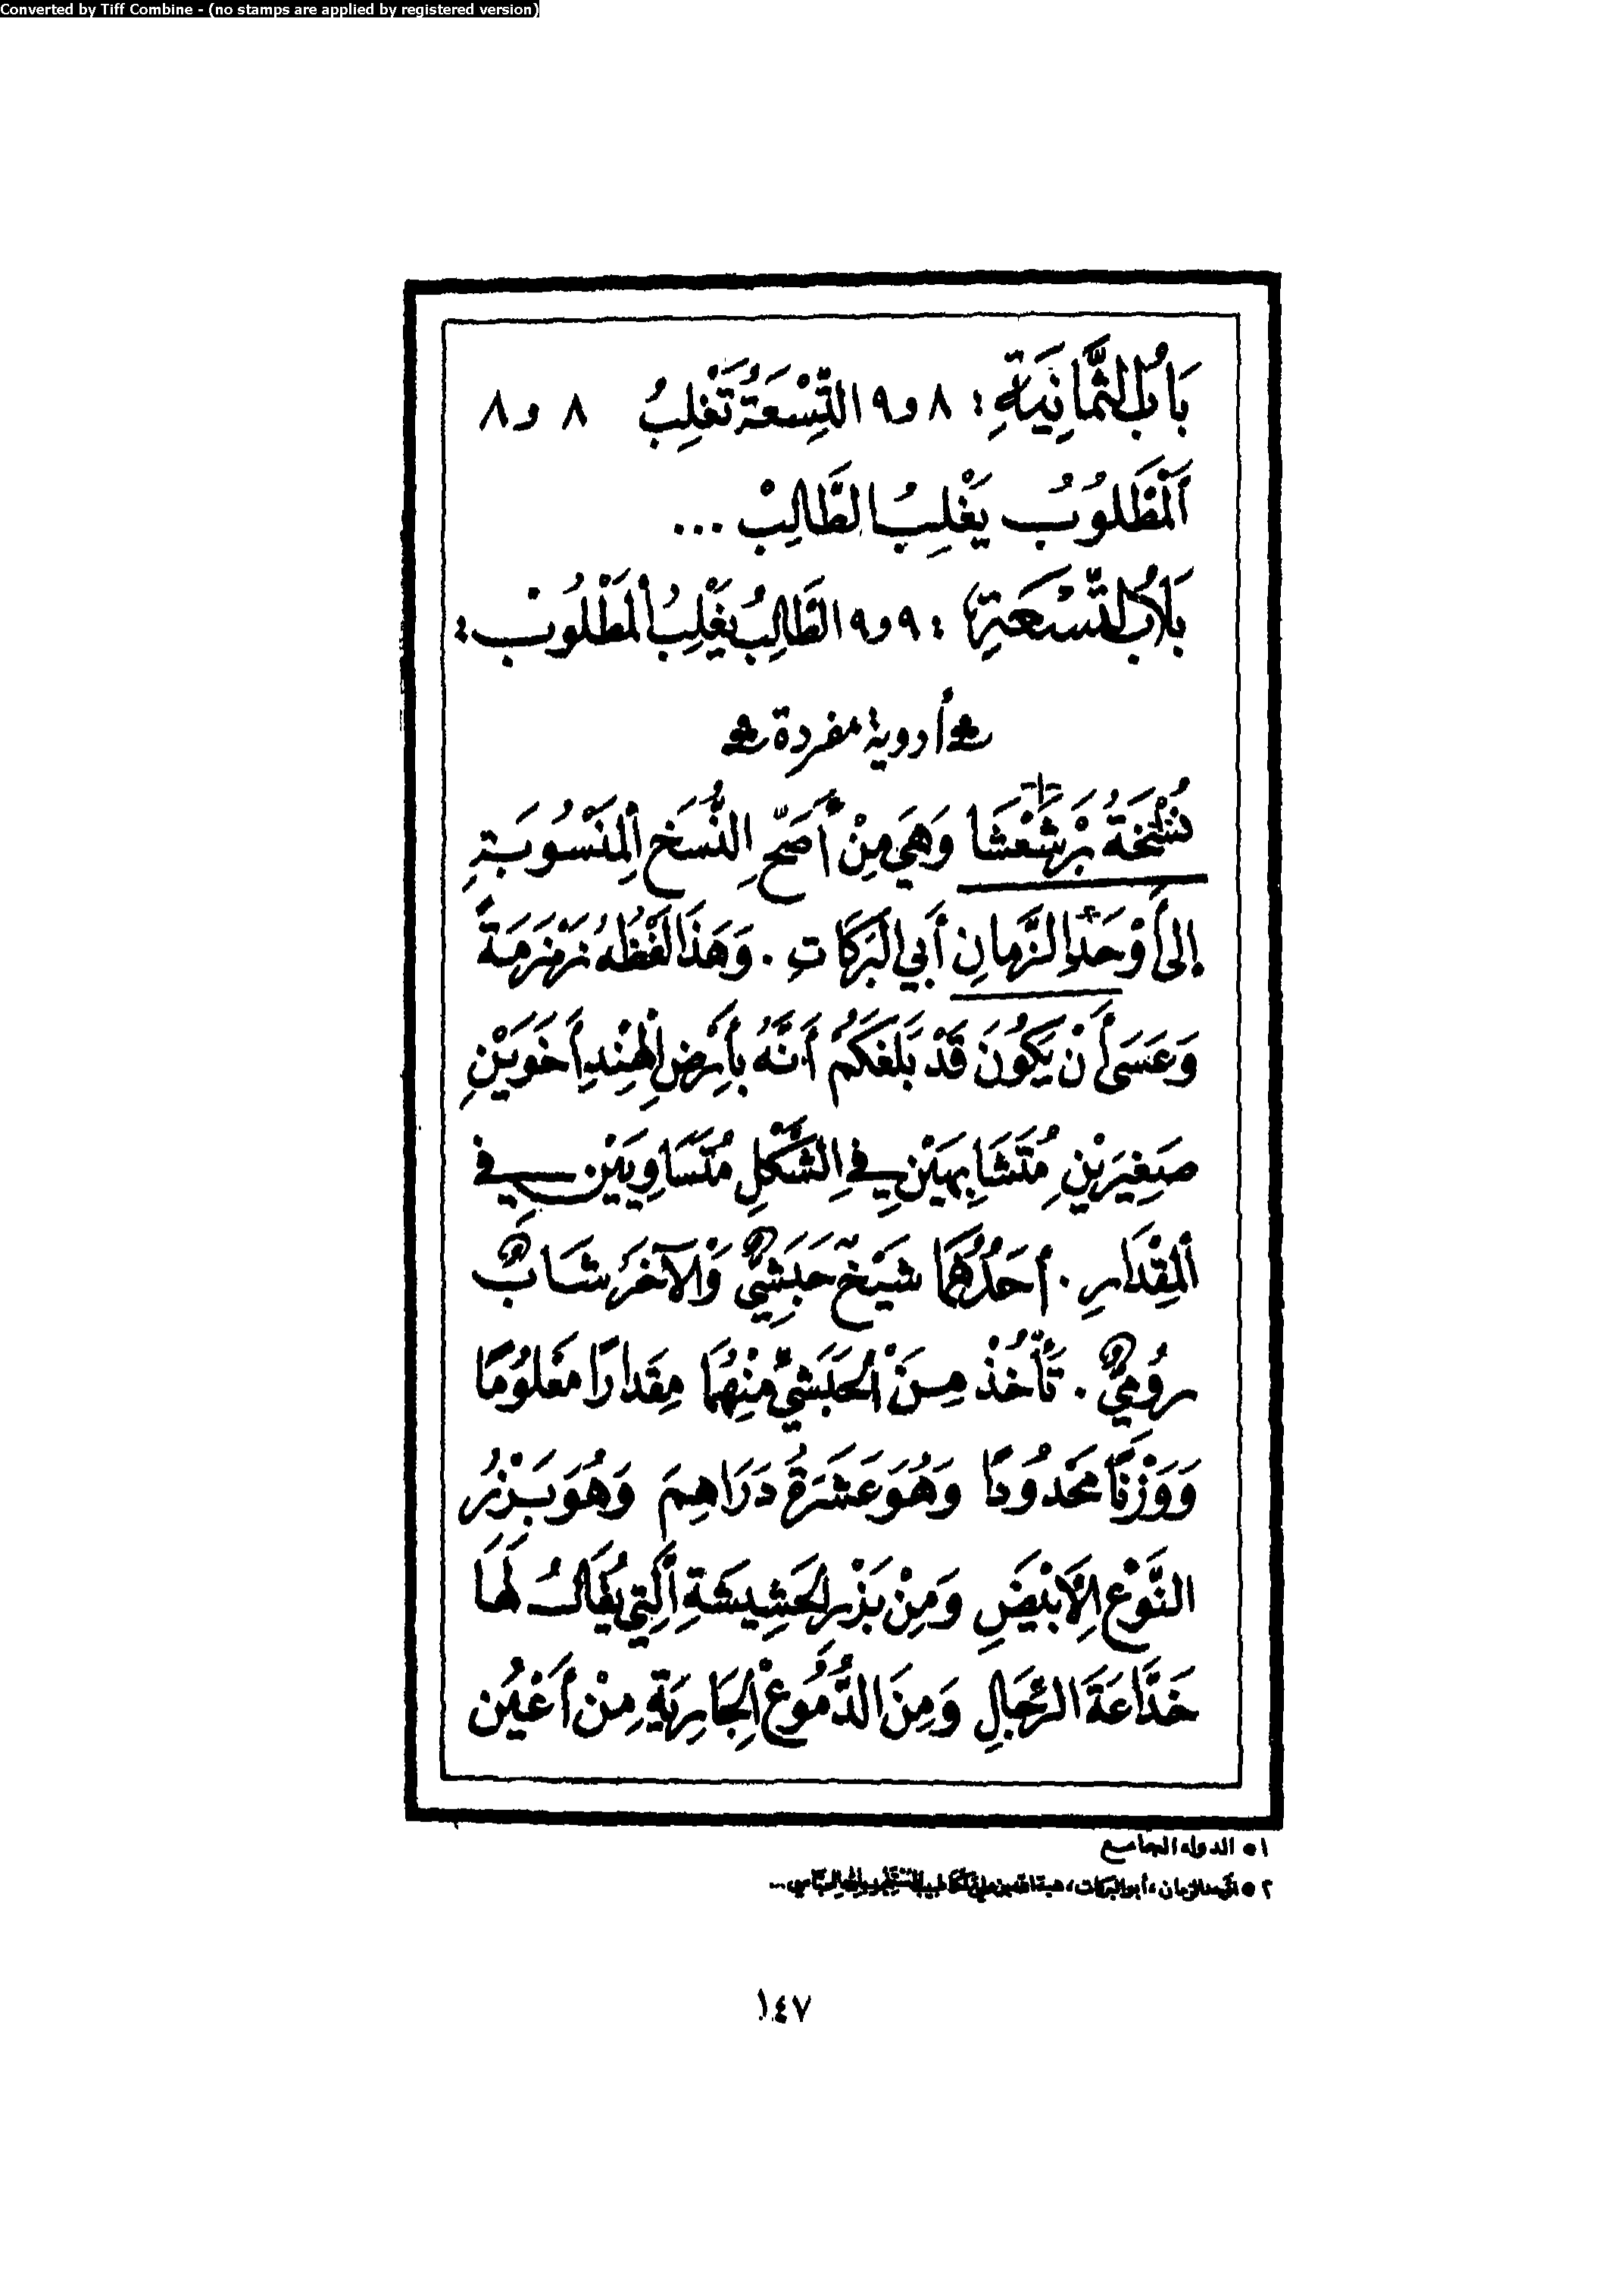 Converted by Tiff Combine - (no stamps are applied by registered version)
بَابُ الثَّمَانِيَةِ : ٨ و ٩ التِّسْعَةُ تَغْلِبُ ٨ و ٨
اَلْمَطْلُوبُ يَغْلِبُ الطَّالِبْ ...
بَابُ التِّسْعَةِ : ٩ و ٩ الطَّالِبُ يَغْلِبُ الْمَطْلُوبْ :
أدوية مفردة
نُسْخَةُ بَرْشَعْشَا وَهِيَ مِنْ أَصَحِّ النُّسَخِ الْمَنْسُوبَةِ
إلى أَوْحَدِ الزَّمانِ أَبي الْبَرَكَاتِ . وَهَذَا لَفْظُهُ زَمْزَمَةً
وَعَسَى أَنْ يَكُونَ قَدْ بَلَغَكُمْ أَنَّهُ بأَرْضِ الْهِنْدِ أَخَوَيْنِ
صَغِيرَيْنِ مُتَشَابِهَيْنِ فِي الشَّكْلِ مُتَسَاوِيَيْنِ فِي
الْمِقْدَارِ . أَحَدُهُمَا شَيْخٌ حَبَشِيٌّ وَالآخَرُ شَابٌّ
رُومِيٌّ . تَأْخُذُ مِنَ الْحَبَشِيِّ مِنْهُمَا مِقَدارًا مَعْلُومًا
وَوَزْنًا مَحْدُودًا وَهُوَ عَشَرَةُ دَرَاهِمَ وَهُوَ بَزْرُ
النَّوْعِ الأَبْيَضِ وَمِنْ بَذْرِ الْحَشِيشَةِ الَّتِي يُقَالُ لَهَا
خَدَّاعَةَ الرِّجَالِ وَمِنَ الدُّمُوعِ الْجَارِيَةِ مِنْ أَعْيُنِ
١ • الدواء الجامع
٢ • أوحد الزمان، أبو البركات، هبة الله بن علي
١٤٧